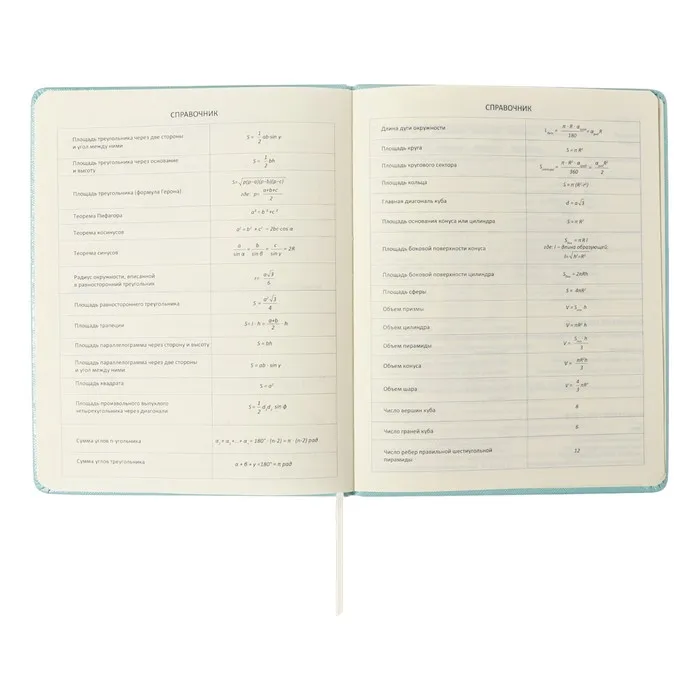 СПРАВОЧНИК
Площадь треугольника через две стороны
и угол между ними
S = 1/2 ab·sin γ
Площадь треугольника через основание
и высоту
S = 1/2 bh
Площадь треугольника (формула Герона)
S=√p(p-a)(p-b)(p-c)
где: p= a+b+c/2
Теорема Пифагора
a² = b²+c²
Теорема косинусов
a² = b² + c² - 2bc·cos α
Теорема синусов
a/sin α = b/sin β = c/sin γ = 2R
Радиус окружности, вписанной
в равносторонний треугольник
r= a√3/6
Площадь равностороннего треугольника
S= a²√3/4
Площадь трапеции
S= l · h = a+b/2 · h
Площадь параллелограмма через сторону и высоту
S = bh
Площадь параллелограмма через две стороны
и угол между ними
S = ab · sin γ
Площадь квадрата
S = a²
Площадь произвольного выпуклого
четырехугольника через диагонали
S = 1/2 d₁d₂ sin φ
Сумма углов n-угольника
α₁ + α₂+...+ αₙ = 180° · (n-2) = π · (n-2) рад
Сумма углов треугольника
α + β + γ =180° = π рад
СПРАВОЧНИК
Длина дуги окружности
Площадь круга
S = π R²
Площадь кругового сектора
Площадь кольца
S = π (R²-r²)
Главная диагональ куба
d = a√3
Площадь основания конуса или цилиндра
S = π R²
Площадь боковой поверхности конуса
= π R l
где: l - длина образующей;
Площадь боковой поверхности цилиндра
= 2πRh
Площадь сферы
S = 4πR²
Объем призмы
V = Sосн h
Объем цилиндра
V = πR² h
Объем пирамиды
V = Sосн h/3
Объем конуса
V = πR²h/3
Объем шара
V = 4/3 πR³
Число вершин куба
8
Число граней куба
6
Число ребер правильной шестиугольной
пирамиды
12